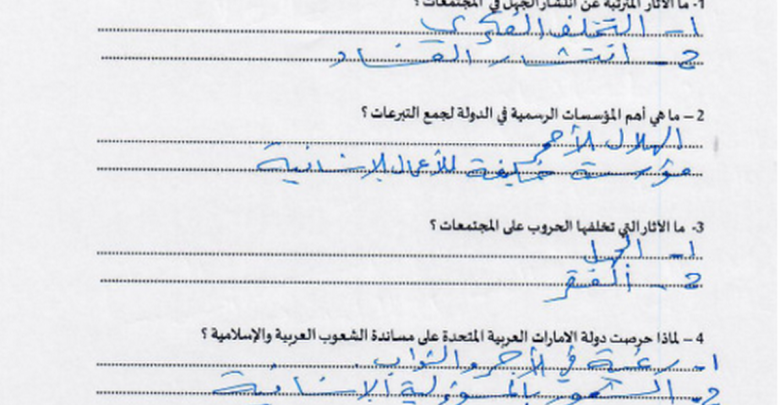 1- ما الآثار المترتبة عن انتشار الجهل في المجتمعات؟
1- التخلف الفكري
2- انتشار الفساد
2 – ما هي أهم المؤسسات الرسمية في الدولة لجمع التبرعات ؟
الهلال الأحمر
مؤسسة خليفة للأعمال الإنسانية
3- ما الآثار التي تخلفها الحروب على المجتمعات ؟
1- الجهل
2- الفقر
4 – لماذا حرصت دولة الامارات العربية المتحدة على مساندة الشعوب العربية والإسلامية ؟
1- رغبة في الأجر والثواب.
2- الشعور بالمسؤولية الإنسانية